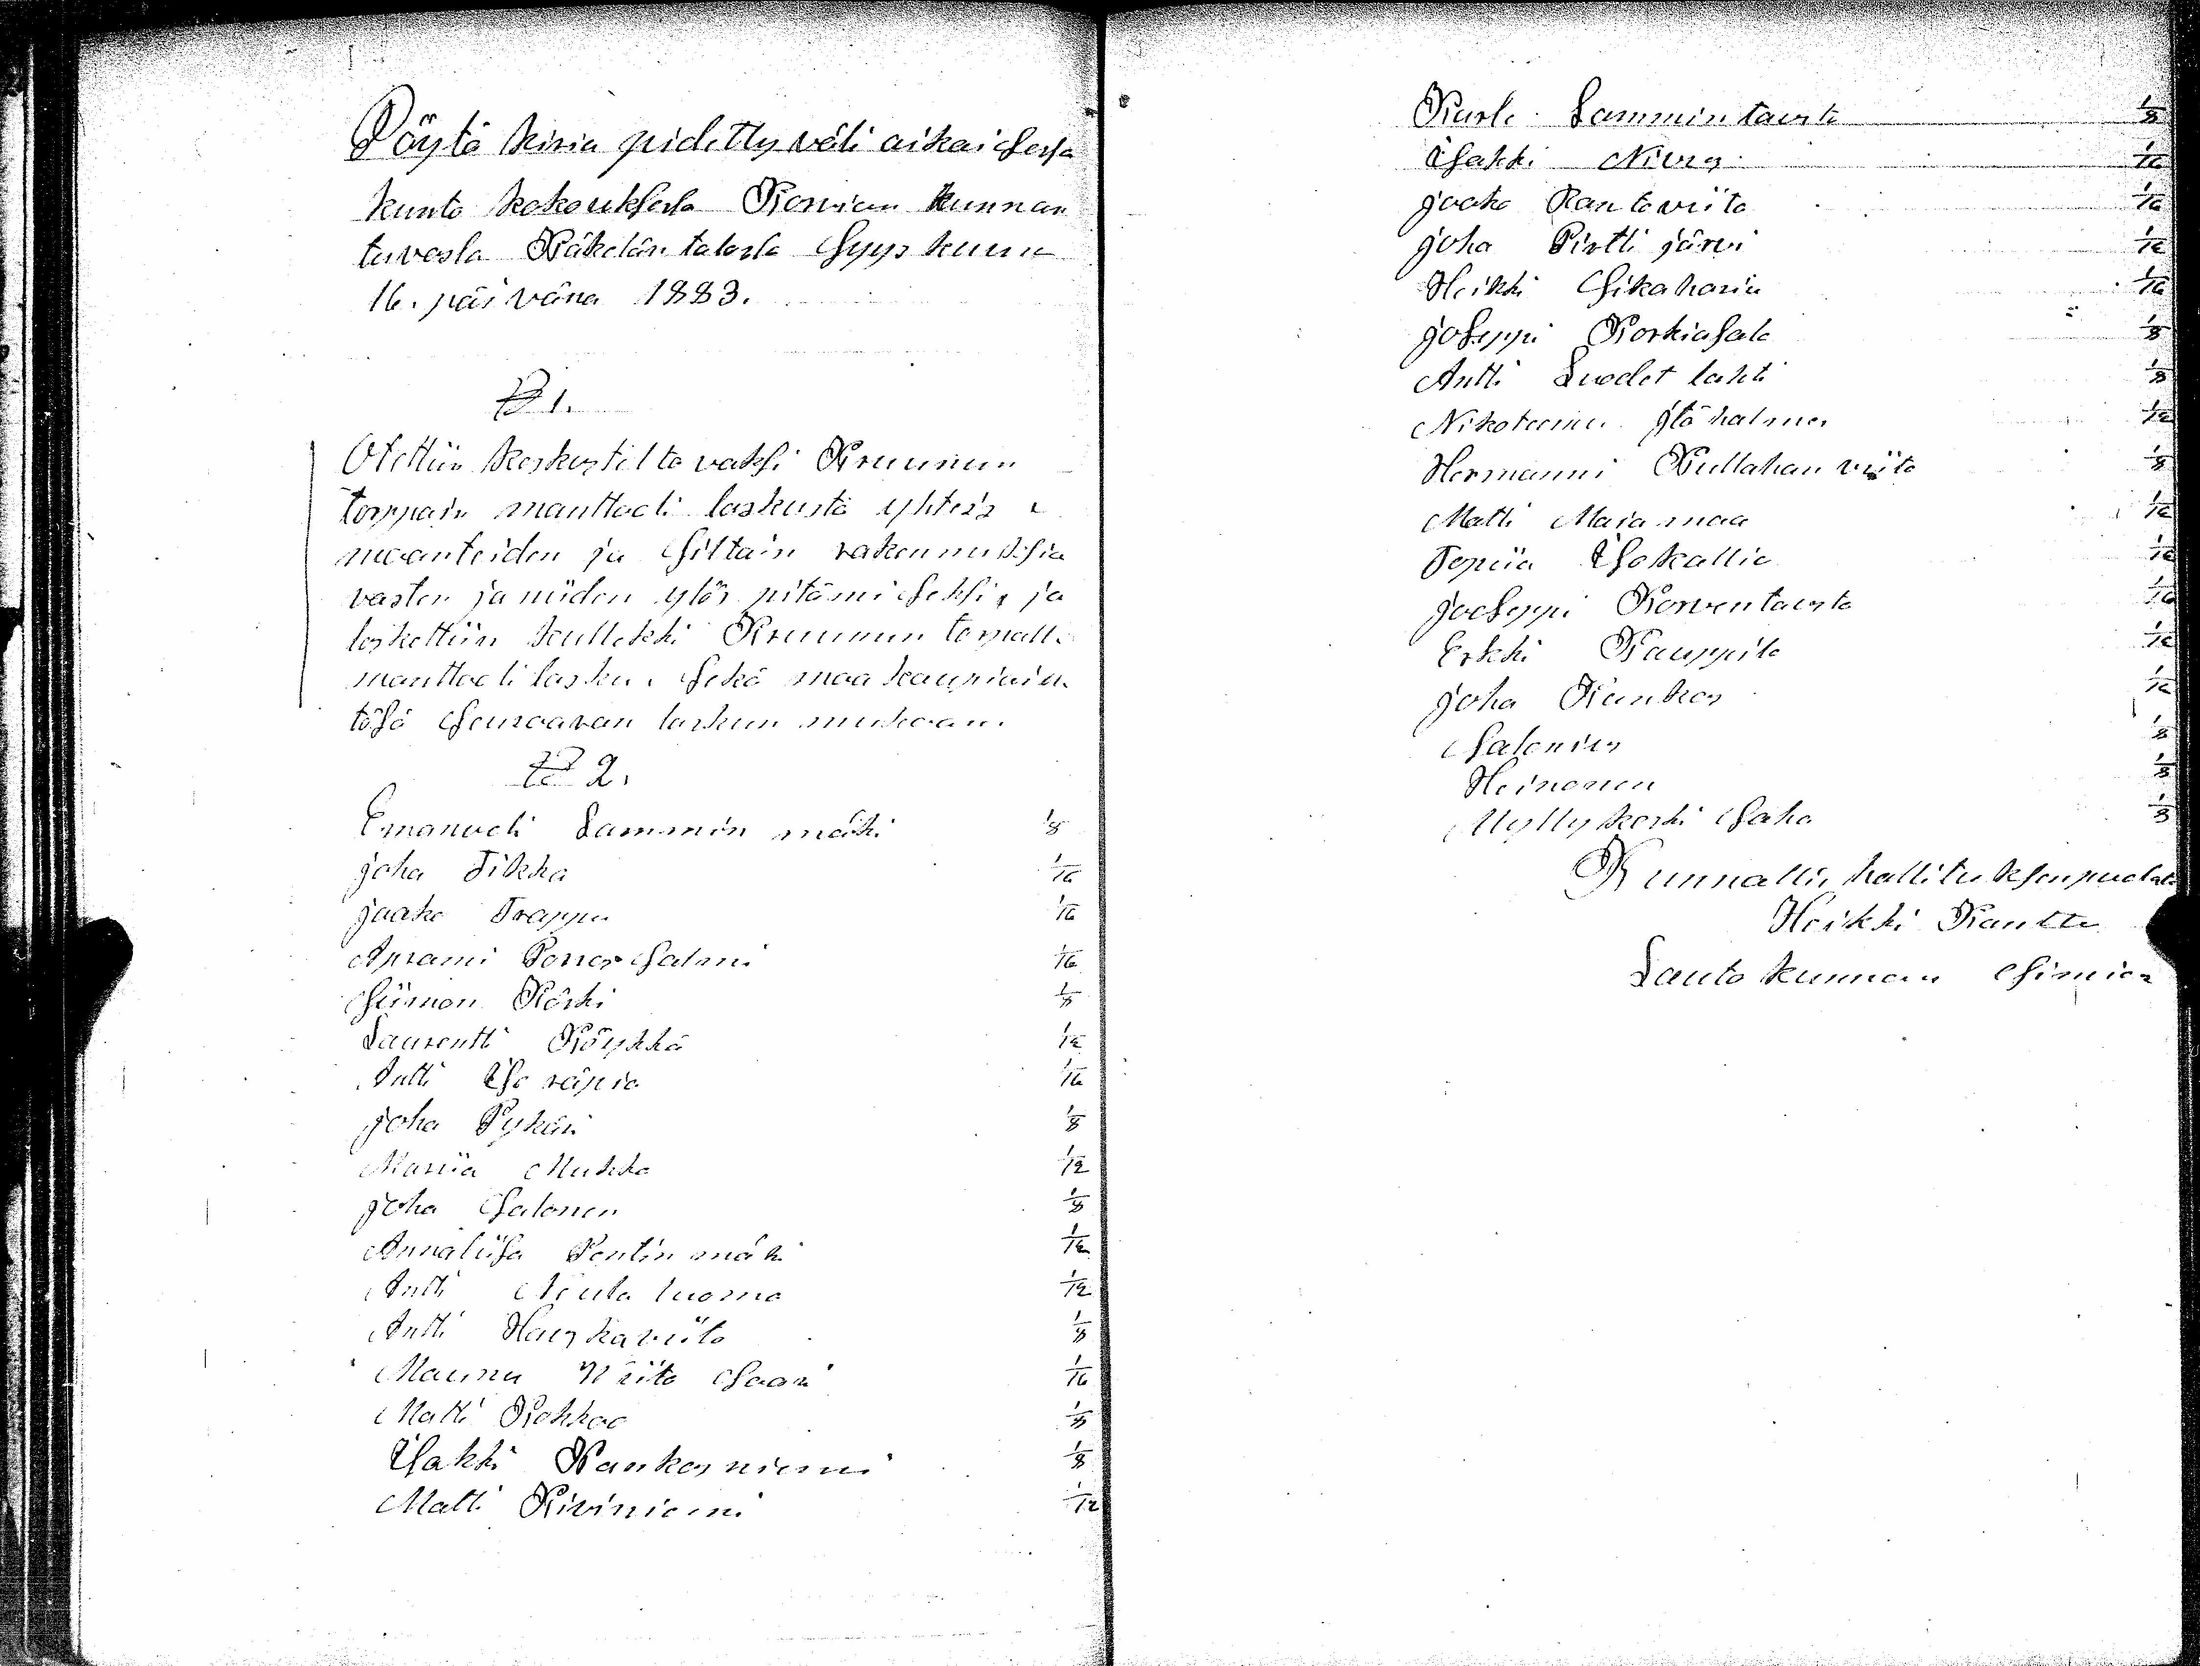 Pöytä kiria pidetty väli aikaisesa
kunta kokouksesa Karvian kunnan
tuvasla Käkelän talosla Syys kuun
16. päi vänä 1883.
§ 1.
Otettiin keskustelta vaksi Kruunun
torppain manttaali laskusta yhteis
maanteiden ja siltain rakennuksia
vasten ja niiden ylös pitämiseksi, ja
laskettiin kullekki Kruunun torpalle
manttaali lasku. sekä maa kauppiain
täsä seuraavan laskun mukaan.
§ 2.
Emanueli Lammin mäki 1/8
joha Tikka 1/16
jaako Trappu 1/16
Aprami Porras salmi 1/16
Siimon Röski 1/8
Laurentti Röykkä 1/12
Antti Iso räpiä 1/16
joha Pykäri 1/8
Mariia Mukka 1/12
joha Salonen 1/8
Annaliisa Pentin mäki 1/12
Antti Neula luoma 1/12
Antti Hauskaviita 1/8
Maunu Viita saari 1/16
Matti Kokkoo 1/8
Isakki Kankas niemi 1/8
Matti Kiviniemi 1/12
Karle Lammintausta 1/8
Isakki Nivus 1/16
jaako Rantaviita 1/16
joha Pirtti järvi 1/12
Heikki Sikaharju 1/16
joseppi Korkiasalo 1/8
Antti Luodet lahti 1/8
Nikoteemu Itä halmes 1/12
Hermanni Kullahan viita 1/8
Matti Maja maa 1/12
Topiia Isokallio 1/12
jooseppi Korventausta 1/16
Erkki Kauppila 1/12
joha Kankas 1/12
Salonius 1/8
Heinonen 1/8
Myllykoski Saha 1/8
Kunnallis hallituksen puolest
Heikki Rantte
Lauta kunnan esimies